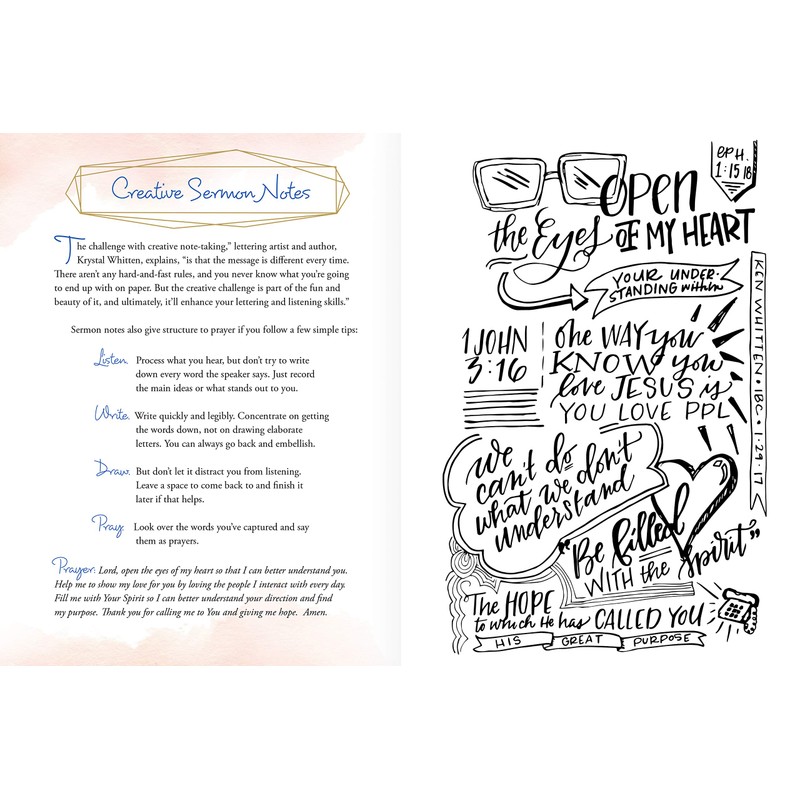 Creative Sermon Notes
The challenge with creative note-taking,” lettering artist and author,
Krystal Whitten, explains, “is that the message is different every time.
There aren’t any hard-and-fast rules, and you never know what you’re going
to end up with on paper. But the creative challenge is part of the fun and
beauty of it, and ultimately, it’ll enhance your lettering and listening skills.”
Sermon notes also give structure to prayer if you follow a few simple tips:
Listen. Process what you hear, but don’t try to write
down every word the speaker says. Just record
the main ideas or what stands out to you.
Write. Write quickly and legibly. Concentrate on getting
the words down, not on drawing elaborate
letters. You can always go back and embellish.
Draw. But don’t let it distract you from listening.
Leave a space to come back to and finish it
later if that helps.
Pray. Look over the words you’ve captured and say
them as prayers.
Prayer: Lord, open the eyes of my heart so that I can better understand you.
Help me to show my love for you by loving the people I interact with every day.
Fill me with Your Spirit so I can better understand your direction and find
my purpose. Thank you for calling me to You and giving me hope. Amen.
EPH.
1:15 18
OPEN
the Eyes OF MY HEART
YOUR UNDER-
STANDING within
KEN WHITTEN • IBC • 1.29.17
1 JOHN
3:16
One WAY you
KNOW you
love JESUS is
YOU LOVE PPL
we
can't do
what we don't
understand
“Be filled
WITH the spirit”
The HOPE
to which He has CALLED YOU
HIS GREAT PURPOSE